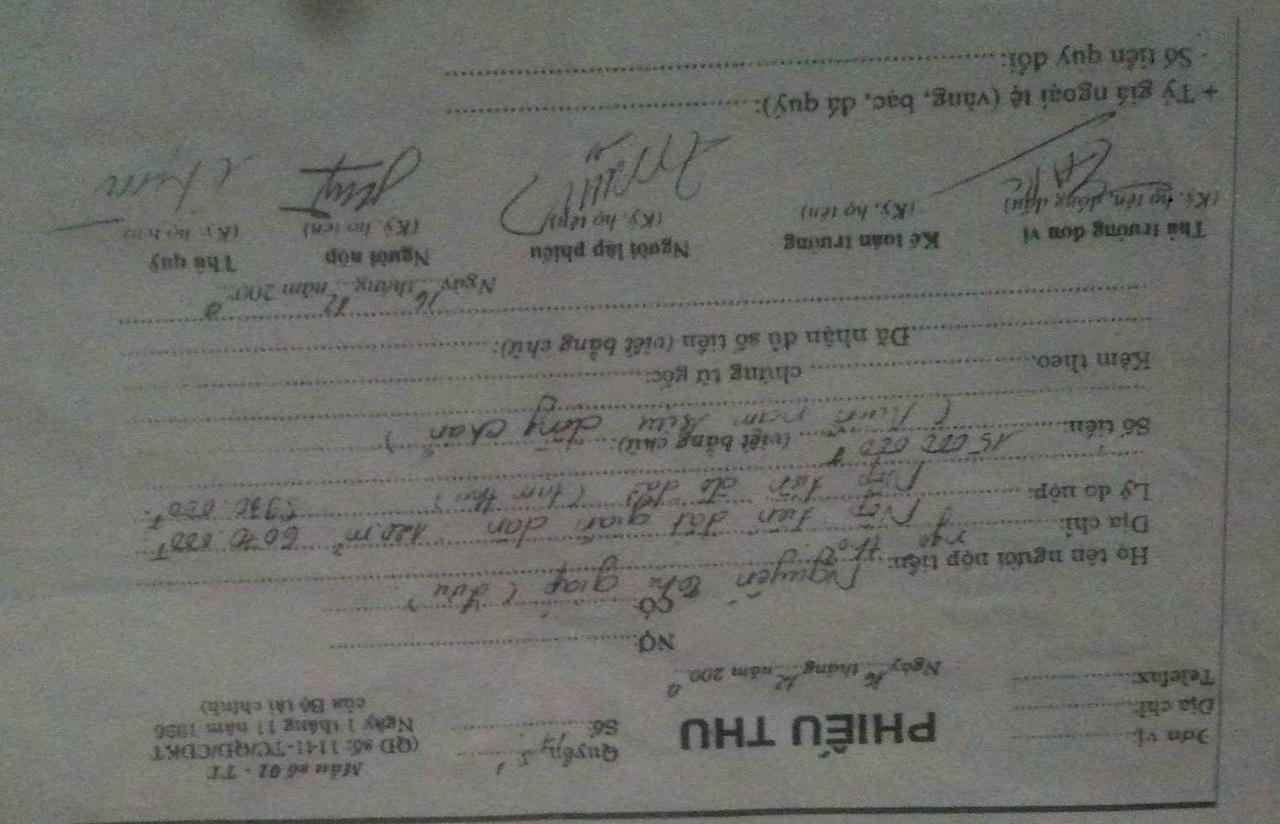 Đơn vị:
Địa chỉ:
Telefax:
PHIẾU THU
Ngày 16 tháng 12 năm 200
Quyển số:
Số:
Mẫu số 01 - TT
(QĐ số: 1141-TC/QĐ/CĐKT
Ngày 1 tháng 11 năm 1996
của Bộ tài chính)
NỢ:
CÓ
Họ tên người nộp tiền: Nguyễn giáp
Địa chỉ: Nộp tiền đất giãn dân 120 m² 6070 000đ
Lý do nộp: Nộp tiền
Số tiền: 15 000 000đ (viết bằng chữ):
( Mười năm triệu đồng chẵn )
Kèm theo: chứng từ gốc:
Đã nhận đủ số tiền (viết bằng chữ):
Ngày 16 tháng 12 năm 200
Thủ trưởng đơn vị
(Ký, họ tên, đóng dấu)
Kế toán trưởng
(Ký, họ tên)
Người lập phiếu
(Ký, họ tên)
Người nộp
(Ký, họ tên)
Thủ quỹ
(Ký, họ tên)
+ Tỷ giá ngoại tệ (vàng, bạc, đá quý):
Số tiền quy đổi: